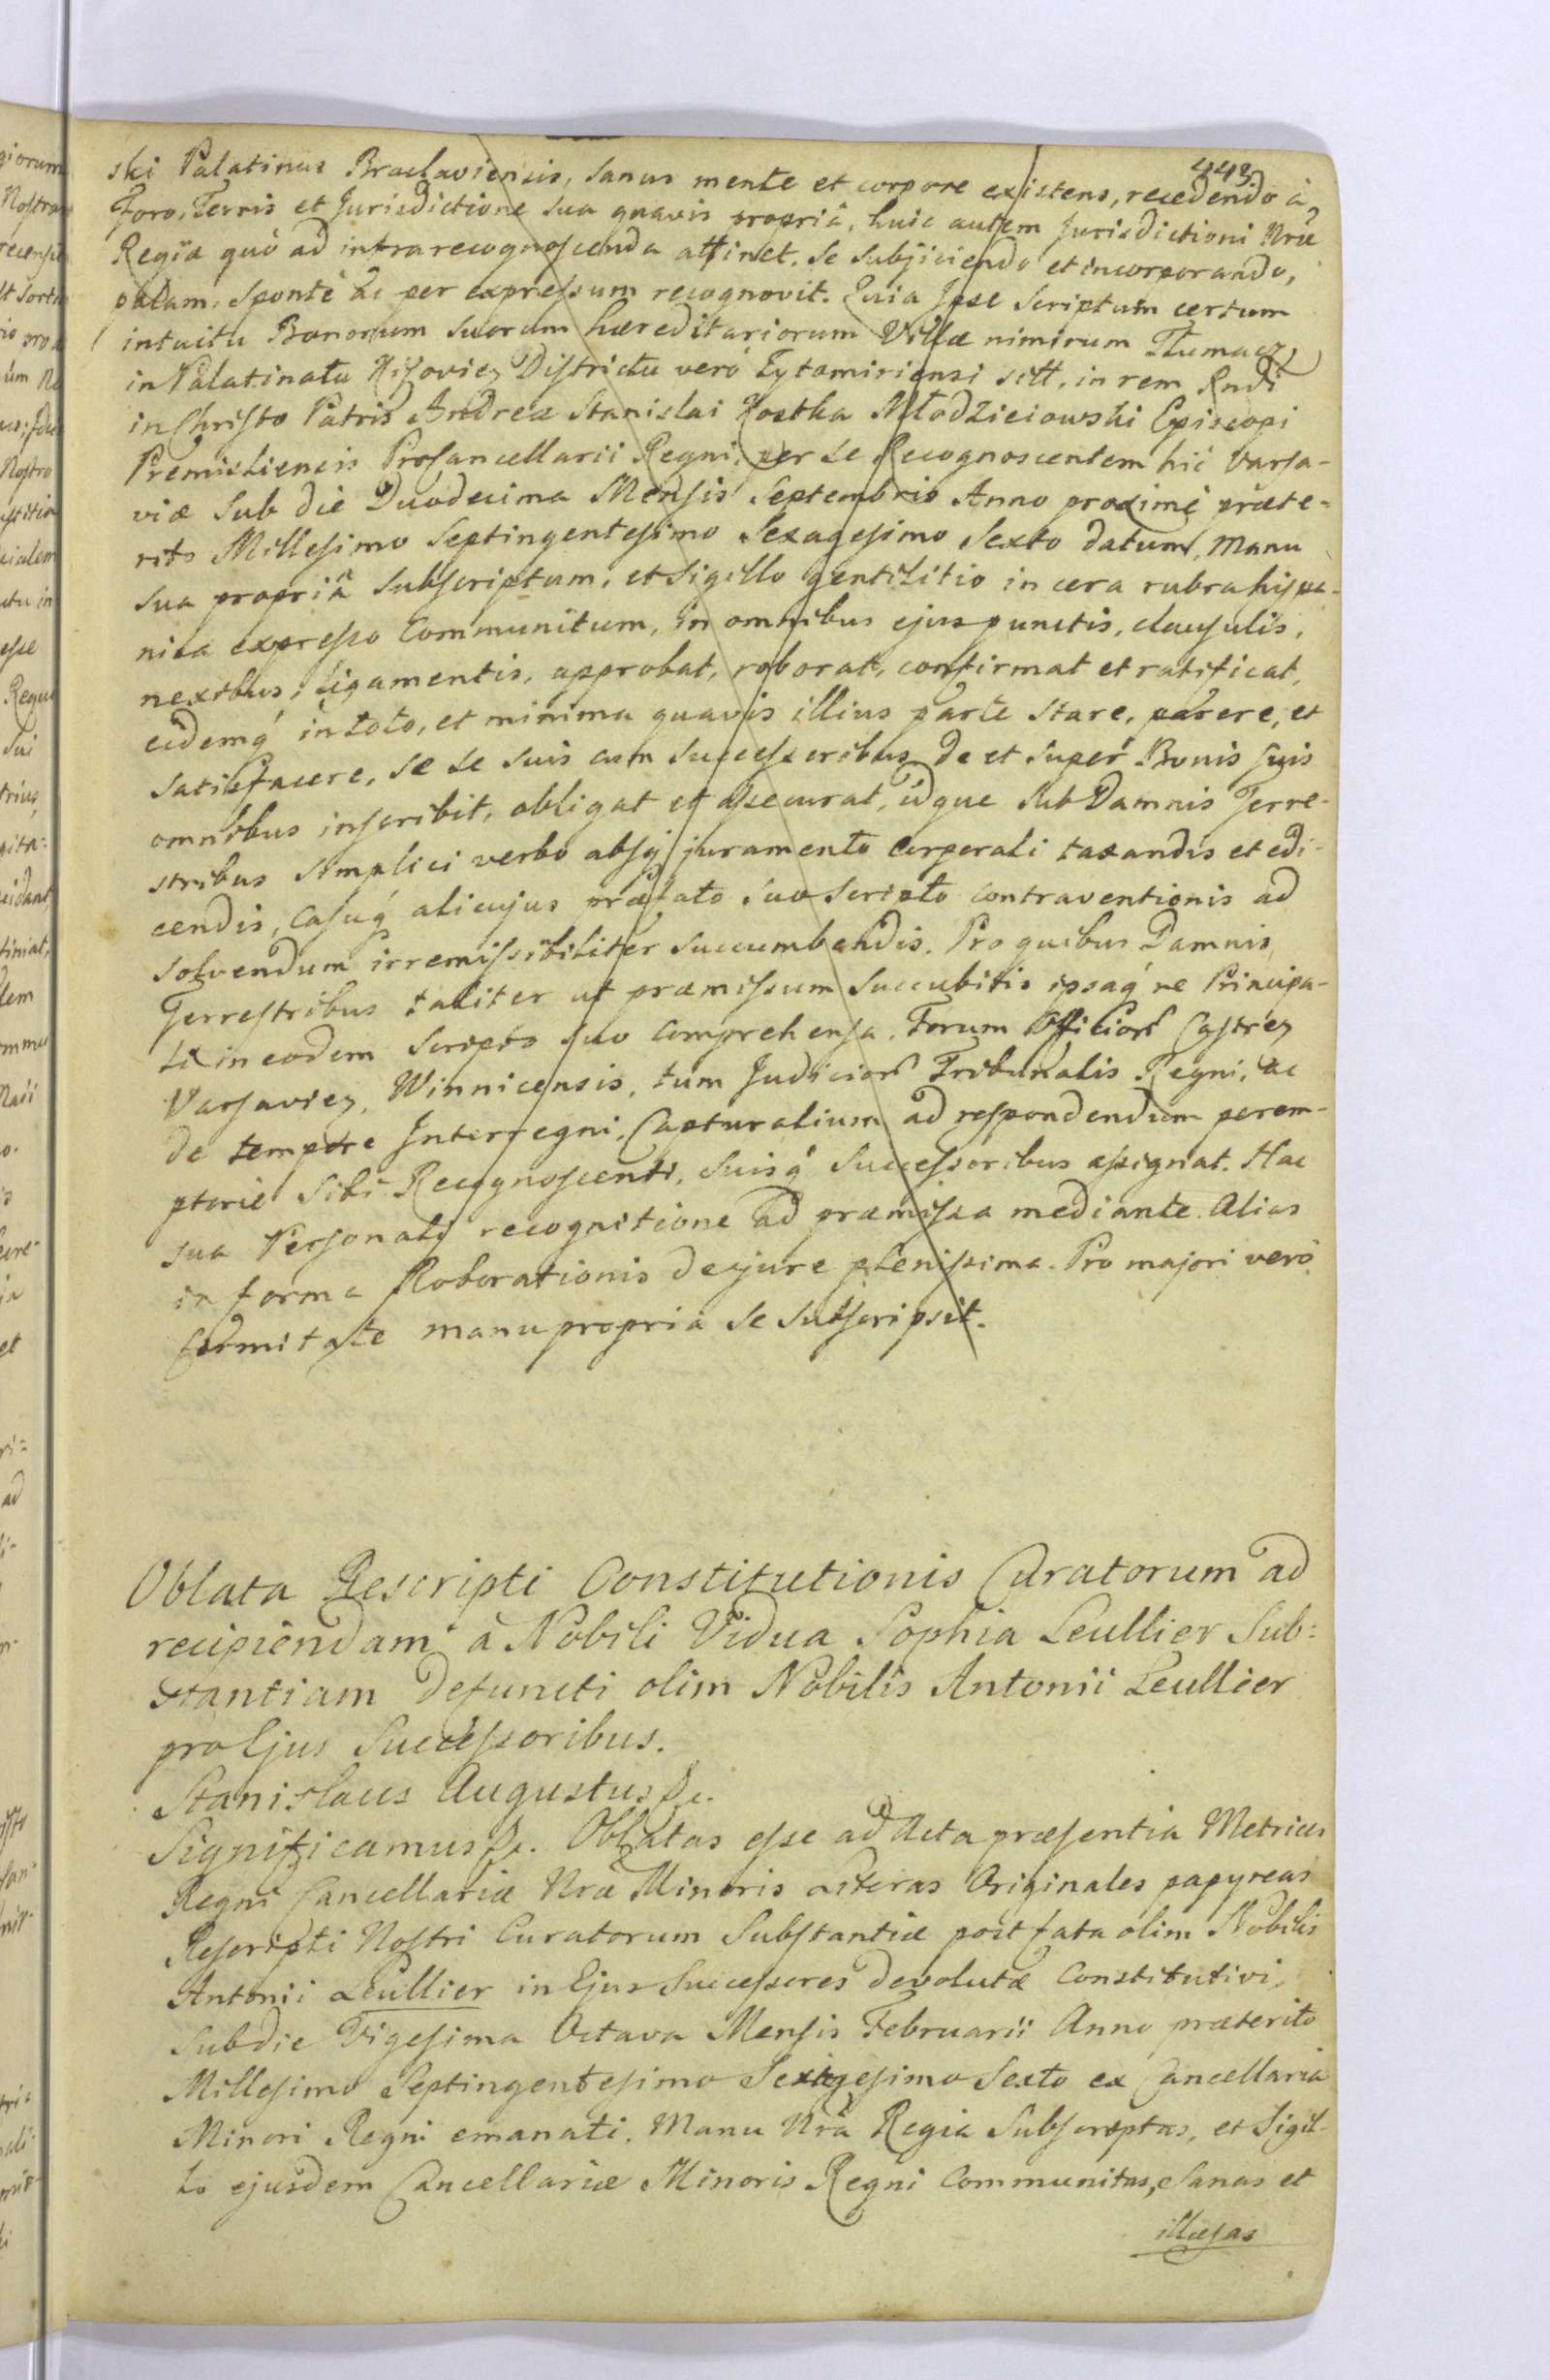 443.
ski Palatinus Braclaviensis, sanus mente et corpore existens, recedendo à
Foro, Terris et Jurisdictione sua quavis propriâ, huic autem Jurisdictioni Nrae
Regiae quò ad infrarecognoscenda attinet, se subjiciendo et incorporando,
palam, sponte ac per expressum recognovit. Quia Ipse Scriptum certum
intuitu Bonorum suorum haereditariorum Villae nimirum Tłumacz
in Palatinatu Kijovien Districtu verò Zytomiriensi sitt, in rem Rndi
in Christo Patris Andreae Stanislai Kostka Młodzieiowski Episcopi
Premisliensis Procancellarii Regni, per se Recognoscentem hic Varsa-
viae sub die Duodecima Mensis Septembris Anno proximè praete-
rito Millesimo Septingentesimo Sexagesimo Sexto datum, manu
sua propriâ subscriptum, et Sigillo gentilitio in cera rubra hispa-
nica expresso Communitum, in omnibus ejus punctis, clausulis,
nexibus, ligamentis, approbat, roborat, confirmat et ratificat,
eidemq́ in toto, et minima quavis illius parte stare, parere, et
satisfacere, se se suis cum successoribus de et super Bonis suis
omnibus inscribit, obligat et assecurat, idque sub Damnis Terre-
stribus simplici verbo absq́ juramento corporali taxandis et edi-
cendis, casuq́ alicujus praefato suo scripto contraventionis ad
solvendum irremissibiliter succumbendis. Pro quibus Damnis
Terrestribus taliter ut praemissum succubitis ipsaq́ re Principa-
li in eodem scripto suo comprehensa, Forum Officior Castren
Varsavien, Winnicensis, tum Judicior Tribunalis Regni, ac
de tempore Interregni, Capturalium ad respondendum perem-
ptorie sibi Recognoscenti, suisq́ successoribus assignat. Hac
sua Personali recognitione ad praemissa mediante. Alias
in forma Roborationis de jure plenissima. Pro majori verò
firmitate manu propria se subscripsit.
Oblata Rescripti Constitutionis Curatorum ad
recipiendam à Nobili Vidua Sophia Leullier Sub=
stantiam defuncti olim Nobilis Antonii Leullier
pro Ejus Successoribus.
Stanislaus Augustus &c.
Significamus &c. Oblatas esse ad Acta praesentia Metrices
Regni Cancellariae Nrae Minoris Literas Originales papyreas
Rescripti Nostri Curatorum Substantiae post fata olim Nobilis
Antonii Leullier in Ejus Successores devolutae Constitutivi,
sub die Vigesima Octava Mensis Februarii Anno praeterito
Millesimo Septingentesimo Sexagesimo Sexto ex Cancellaria
Minori Regni emanati, Manu Nrâ Regia Subscriptas, et Sigil-
lo ejusdem Cancellariae Minoris Regni Communitas, sanas et
illaesas